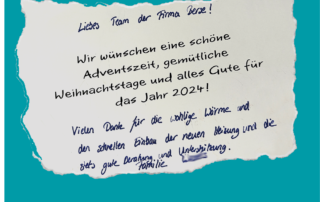 Liebes Team der Firma Besse!
Wir wünschen eine schöne
Adventszeit, gemütliche
Weihnachtstage und alles Gute für
das Jahr 2024!
Vielen Dank für die wohlige Wärme und
den schnellen Einbau der neuen Heizung und die
stets gute Beratung und Unterstützung.
Familie